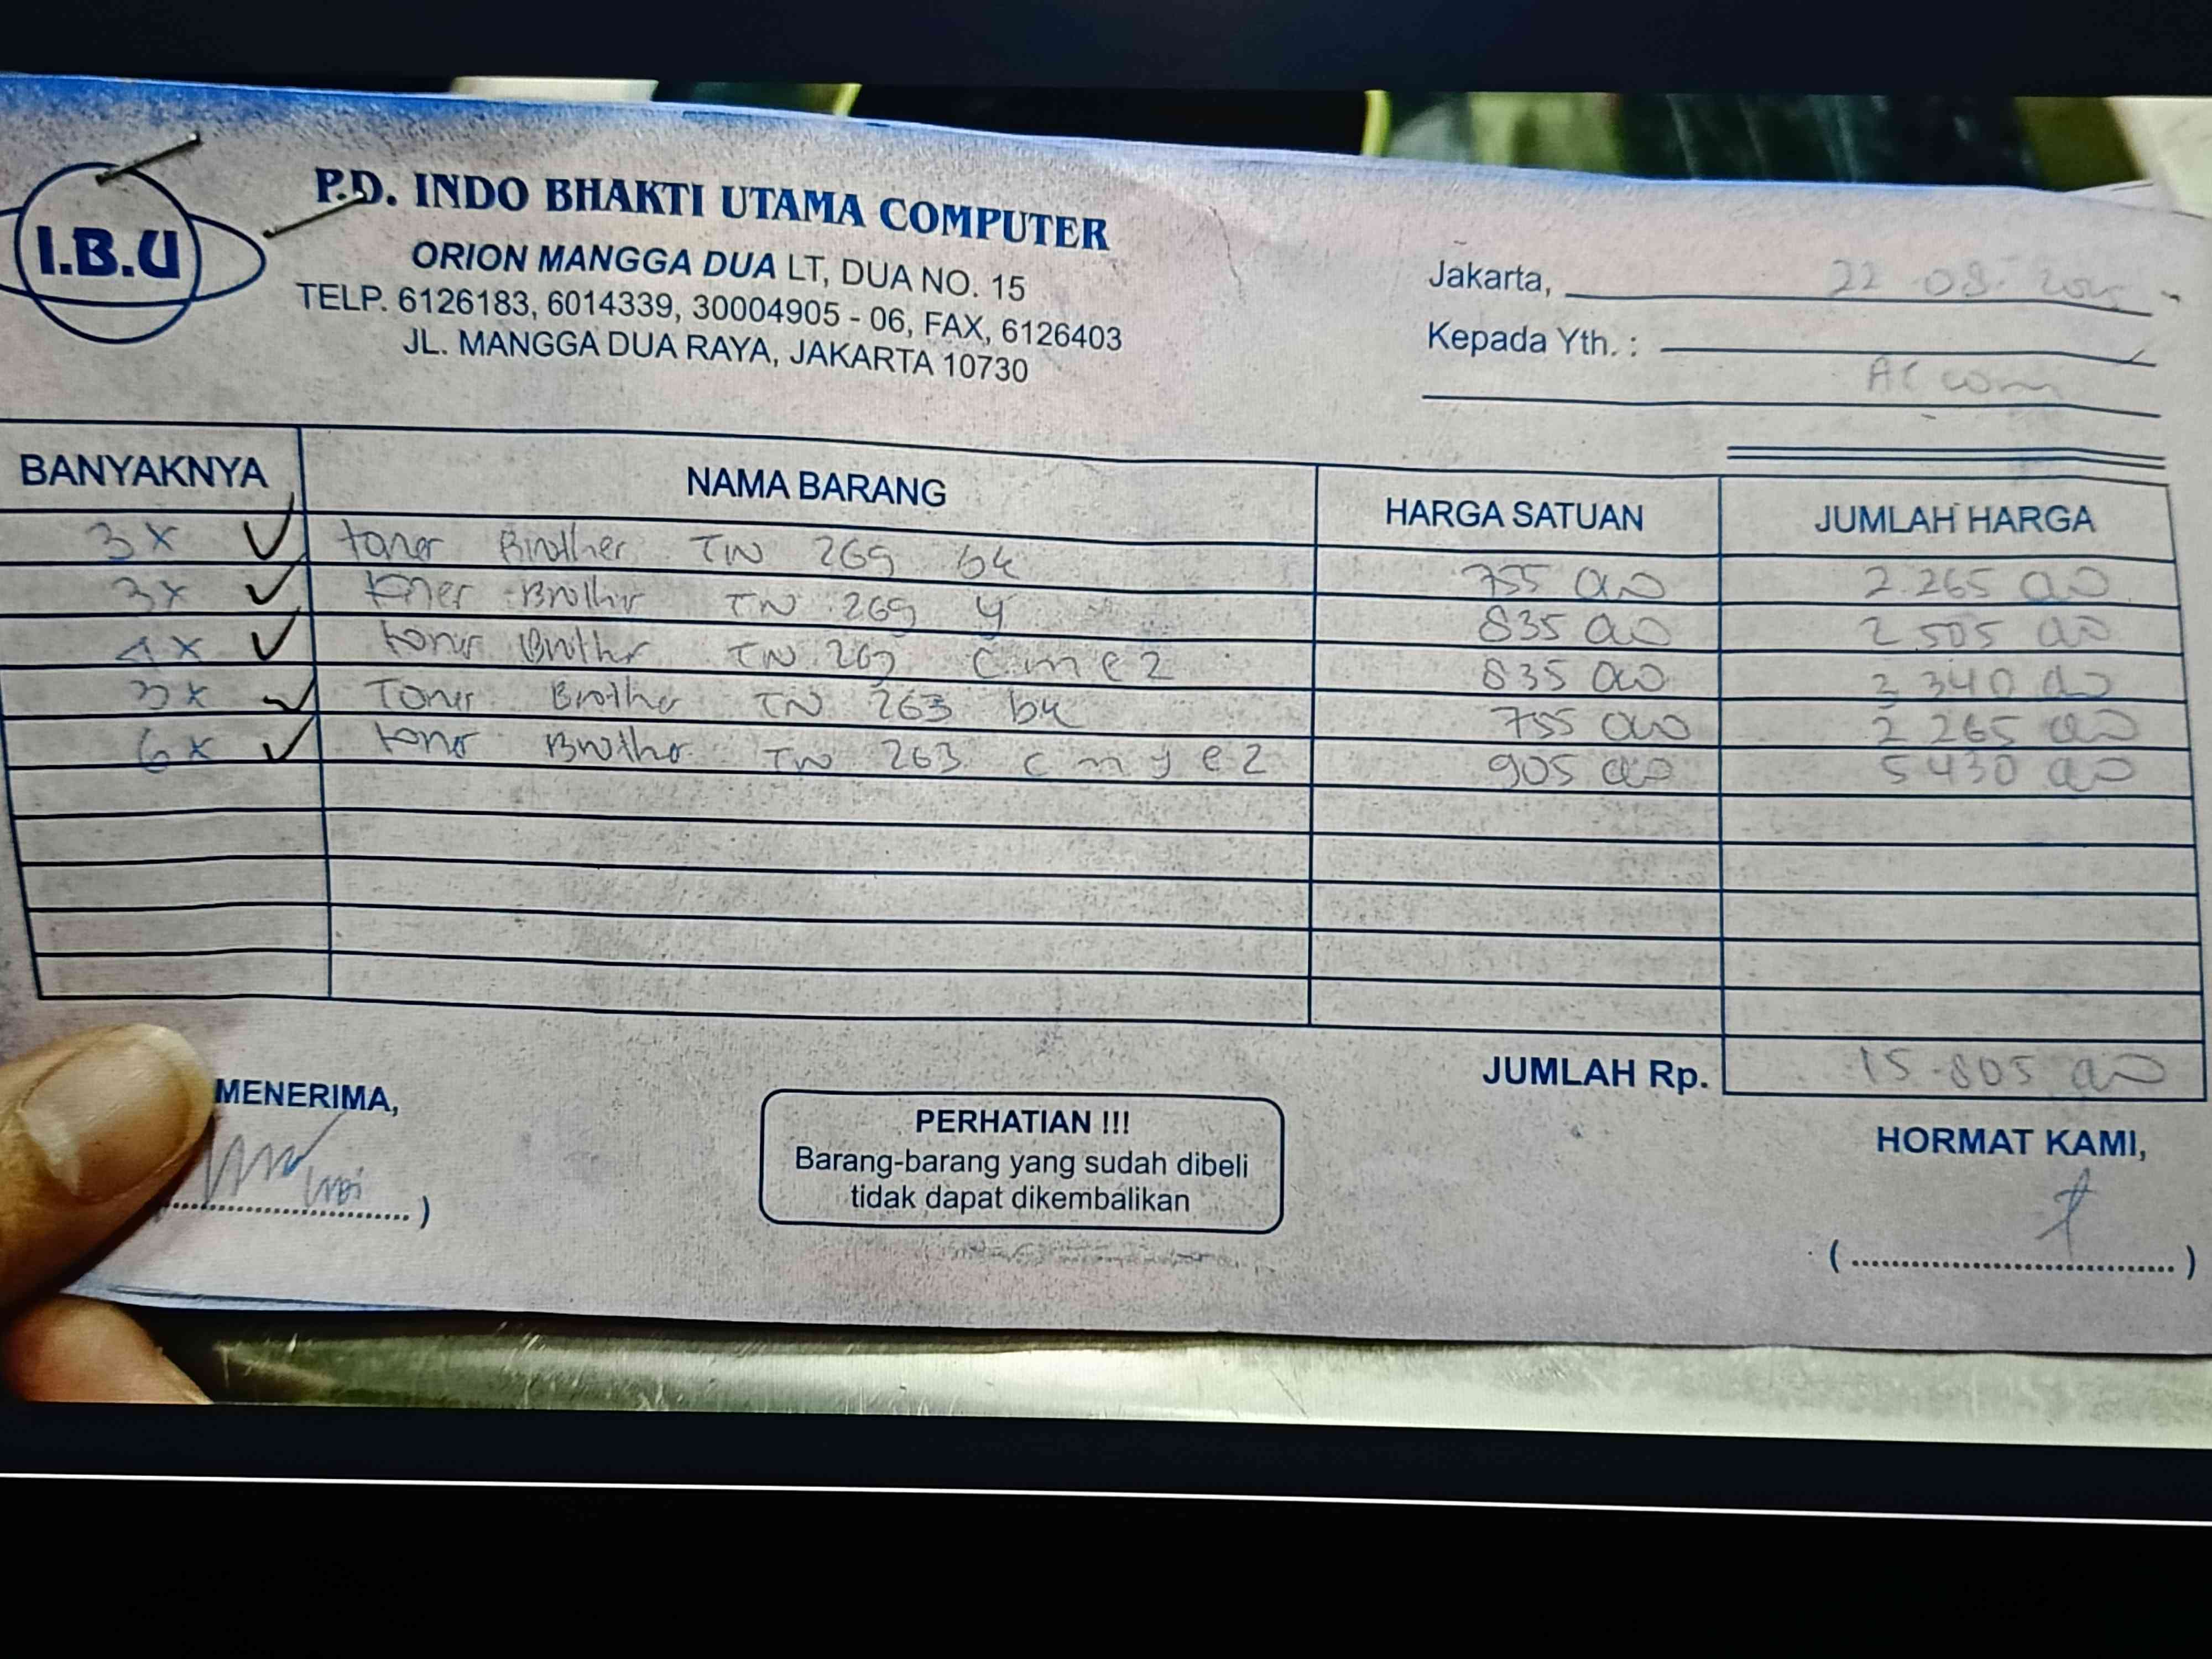 I.B.U
P.D. INDO BHAKTI UTAMA COMPUTER
ORION MANGGA DUA LT, DUA NO. 15
TELP. 6126183, 6014339, 30004905 - 06, FAX, 6126403
JL. MANGGA DUA RAYA, JAKARTA 10730
Jakarta, 22-08-2025
Kepada Yth. :
BANYAKNYA NAMA BARANG HARGA SATUAN JUMLAH HARGA
3x toner Brother TN 269 bk 755 000 2.265 000
3x toner Brother TN 269 y 835 000 2 505 000
4x toner Brother TN 269 c m e 2 835 000 3 340 000
3x Toner Brother TN 263 bk 755 000 2 265 000
6x toner Brother TN 263 c m y e 2 905 000 5 430 000
JUMLAH Rp. 15.805 000
MENERIMA,
PERHATIAN !!!
Barang-barang yang sudah dibeli
tidak dapat dikembalikan
HORMAT KAMI,